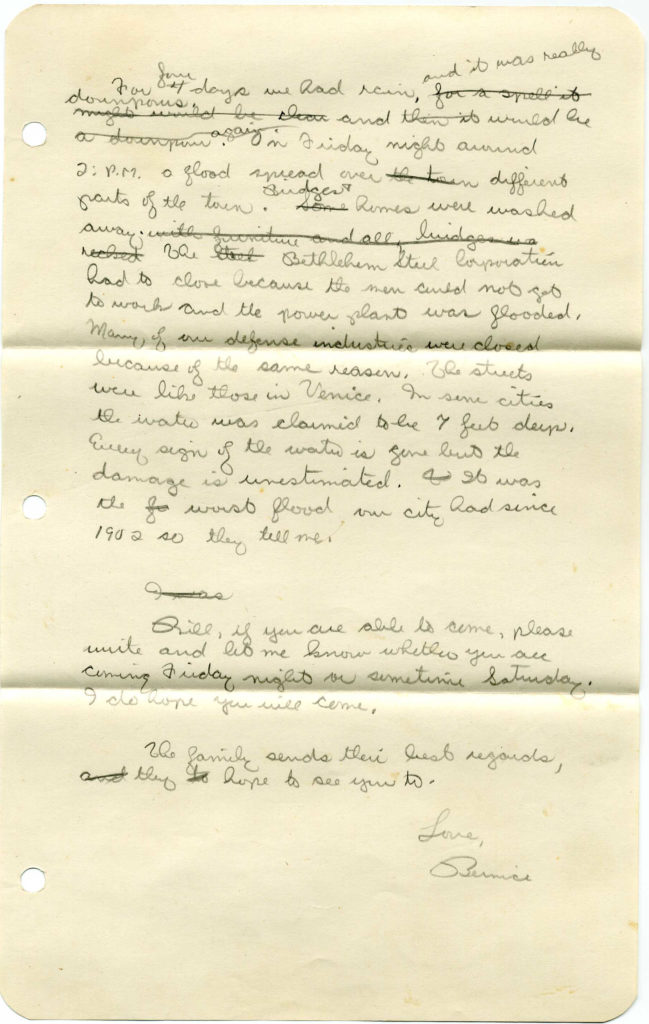 and it was really
four
For 4 days we had rain, for a spell it
downpours.
might would be clear and then it would be
again
a downpour. On Friday night around
2: P.M. a flood spread over the town different
Bridges &
parts of the town. Some homes were washed
away. with furniture and all, bridges wa
The Steel Bethlehem Steel Corporation
had to close because the men could not get
to work and the power plant was flooded.
Many, of our defense industries were closed
because of the same reason. The streets
were like those in Venice. In some cities
the water was claimed to be 7 feet deep.
Every sign of the water is gone but the
damage is unestimated. It was
the fo worst flood our city had since
1902 so they tell me.
I was
Bill, if you are able to come, please
write and let me know whether you are
coming Friday night or sometime Saturday.
I do hope you will come.
The family sends their best regards,
and they to hope to see you to.
Love,
Bernice